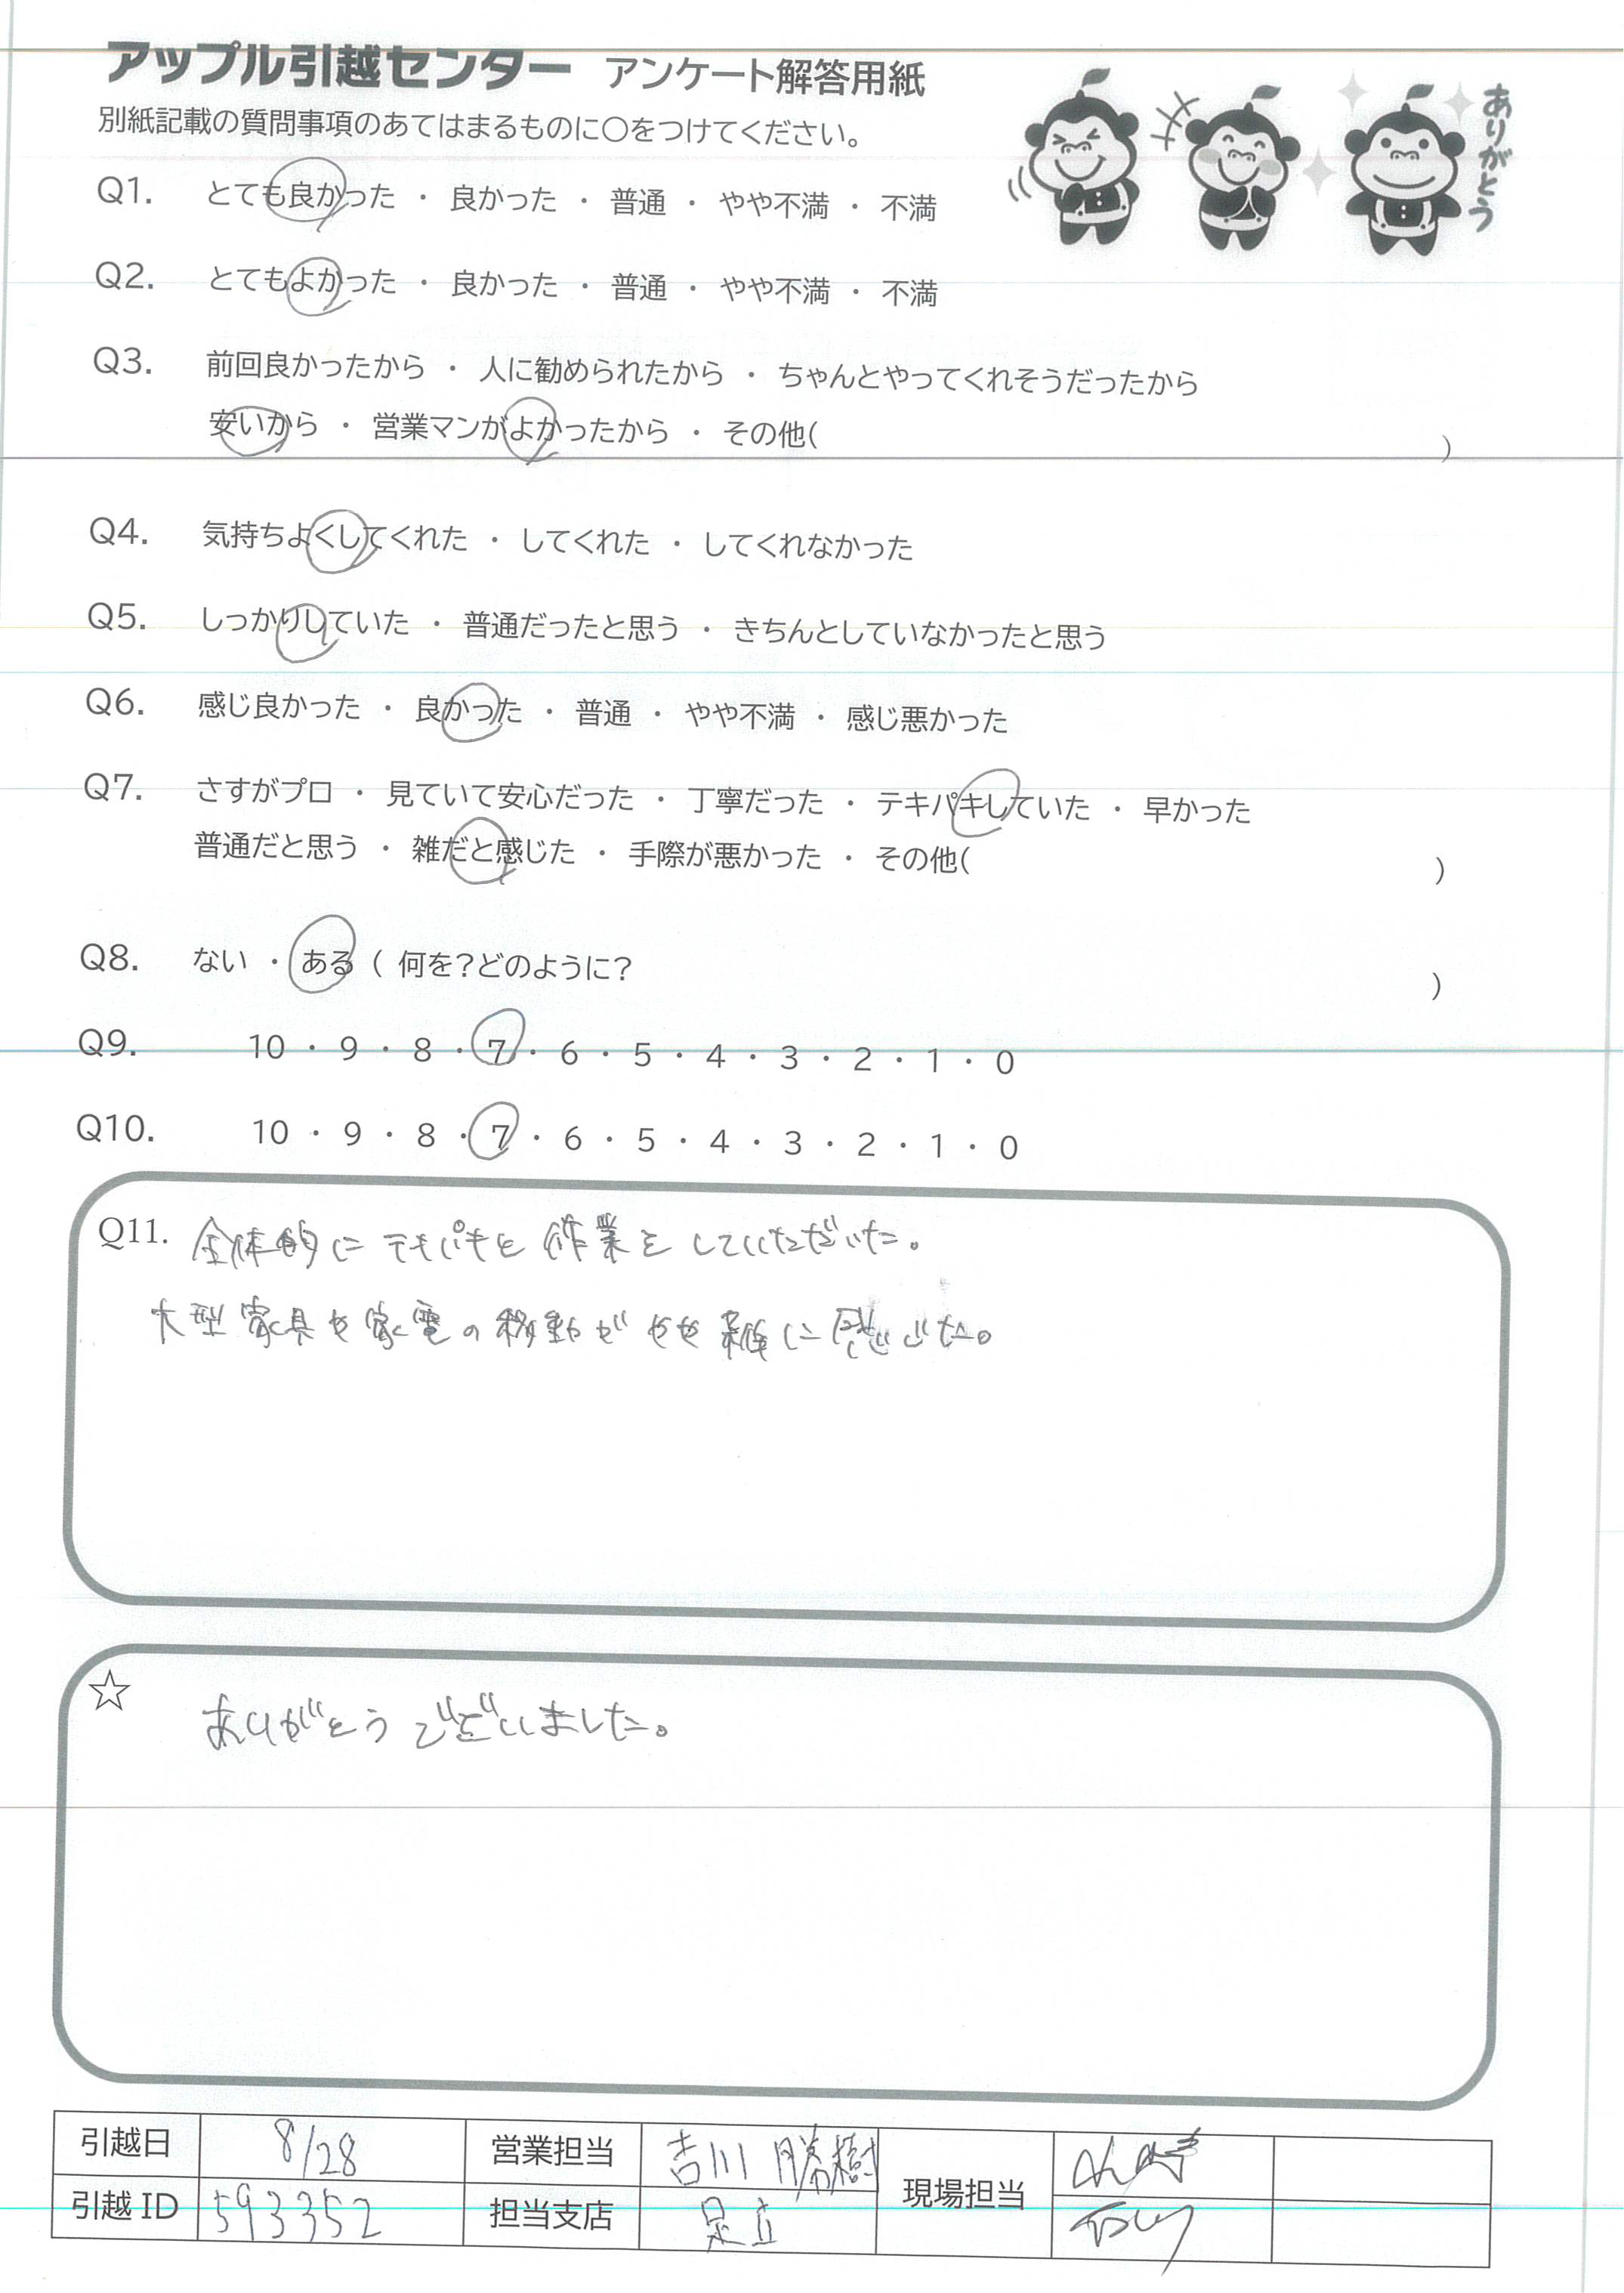 アップル引越センター アンケート解答用紙
別紙記載の質問事項のあてはまるものに〇をつけてください。
ありがとう
Q1. とても良かった ・ 良かった ・ 普通 ・ やや不満 ・ 不満
Q2. とてもよかった ・ 良かった ・ 普通 ・ やや不満 ・ 不満
Q3. 前回良かったから ・ 人に勧められたから ・ ちゃんとやってくれそうだったから
安いから ・ 営業マンがよかったから ・ その他( )
Q4. 気持ちよくしてくれた ・ してくれた ・ してくれなかった
Q5. しっかりしていた ・ 普通だったと思う ・ きちんとしていなかったと思う
Q6. 感じ良かった ・ 良かった ・ 普通 ・ やや不満 ・ 感じ悪かった
Q7. さすがプロ ・ 見ていて安心だった ・ 丁寧だった ・ テキパキしていた ・ 早かった
普通だと思う ・ 雑だと感じた ・ 手際が悪かった ・ その他( )
Q8. ない ・ ある ( 何を?どのように? )
Q9. 10 ・ 9 ・ 8 ・ 7 ・ 6 ・ 5 ・ 4 ・ 3 ・ 2 ・ 1 ・ 0
Q10. 10 ・ 9 ・ 8 ・ 7 ・ 6 ・ 5 ・ 4 ・ 3 ・ 2 ・ 1 ・ 0
Q11. 全体的にテキパキと作業をしていただいた。
大型家具や家電の移動がやや雑に感じた。
☆ ありがとうございました。
引越日 8/28 営業担当 吉川 勝樹 現場担当
引越ID 593352 担当支店 足立